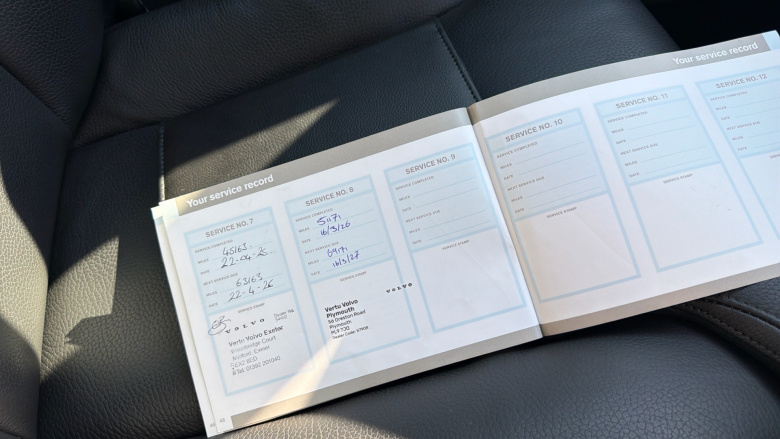 Your service record
SERVICE NO. 7
SERVICE COMPLETED:
MILES
DATE
NEXT SERVICE DUE
MILES 63163
DATE 22-4-26
SERVICE STAMP
VOLVO
Vertu Volvo Exeter
Court
Exeter
Tel: 01392
SERVICE NO. 8
SERVICE COMPLETED:
MILES 51171
DATE 16/3/26
NEXT SERVICE DUE
MILES
DATE 16/3/27
SERVICE STAMP
VOLVO
Vertu Volvo
Plymouth
Plymouth
SERVICE NO. 9
SERVICE COMPLETED:
MILES
DATE
NEXT SERVICE DUE
MILES
DATE
SERVICE STAMP
Your service record
SERVICE NO. 10
SERVICE COMPLETED:
MILES
DATE
NEXT SERVICE DUE
MILES
DATE
SERVICE STAMP
SERVICE NO. 11
SERVICE COMPLETED:
MILES
DATE
NEXT SERVICE DUE
MILES
DATE
SERVICE STAMP
SERVICE NO. 12
SERVICE COMPLETED:
MILES
DATE
NEXT SERVICE DUE
MILES
DATE